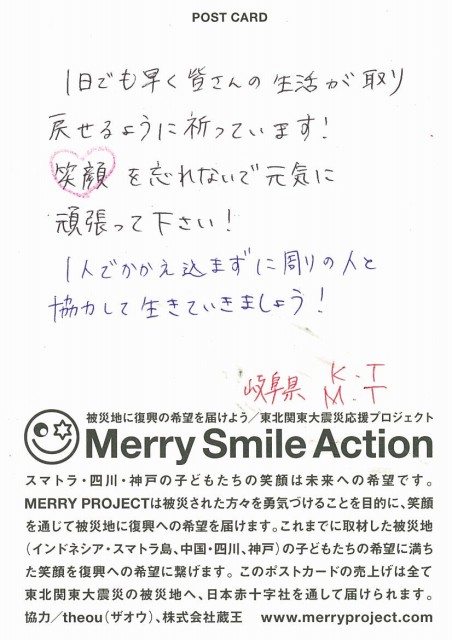 POST CARD
1日でも早く皆さんの生活が取り
戻せるように祈っています!
笑顔を忘れないで元気に
頑張って下さい!
1人でかかえ込まずに周りの人と
協力して生きていきましょう!
岐阜県 K.T
M.T
被災地に復興の希望を届けよう/東北関東大震災応援プロジェクト
Merry Smile Action
スマトラ・四川・神戸の子どもたちの笑顔は未来への希望です。
MERRY PROJECTは被災された方々を勇気づけることを目的に、笑顔
を通じて被災地に復興への希望を届けます。これまでに取材した被災地
(インドネシア・スマトラ島、中国・四川、神戸)の子どもたちの希望に満ち
た笑顔を復興への希望に繋げます。このポストカードの売上げは全て
東北関東大震災の被災地へ、日本赤十字社を通して届けられます。
協力/theou(ザオウ)、株式会社蔵王 www.merryproject.com